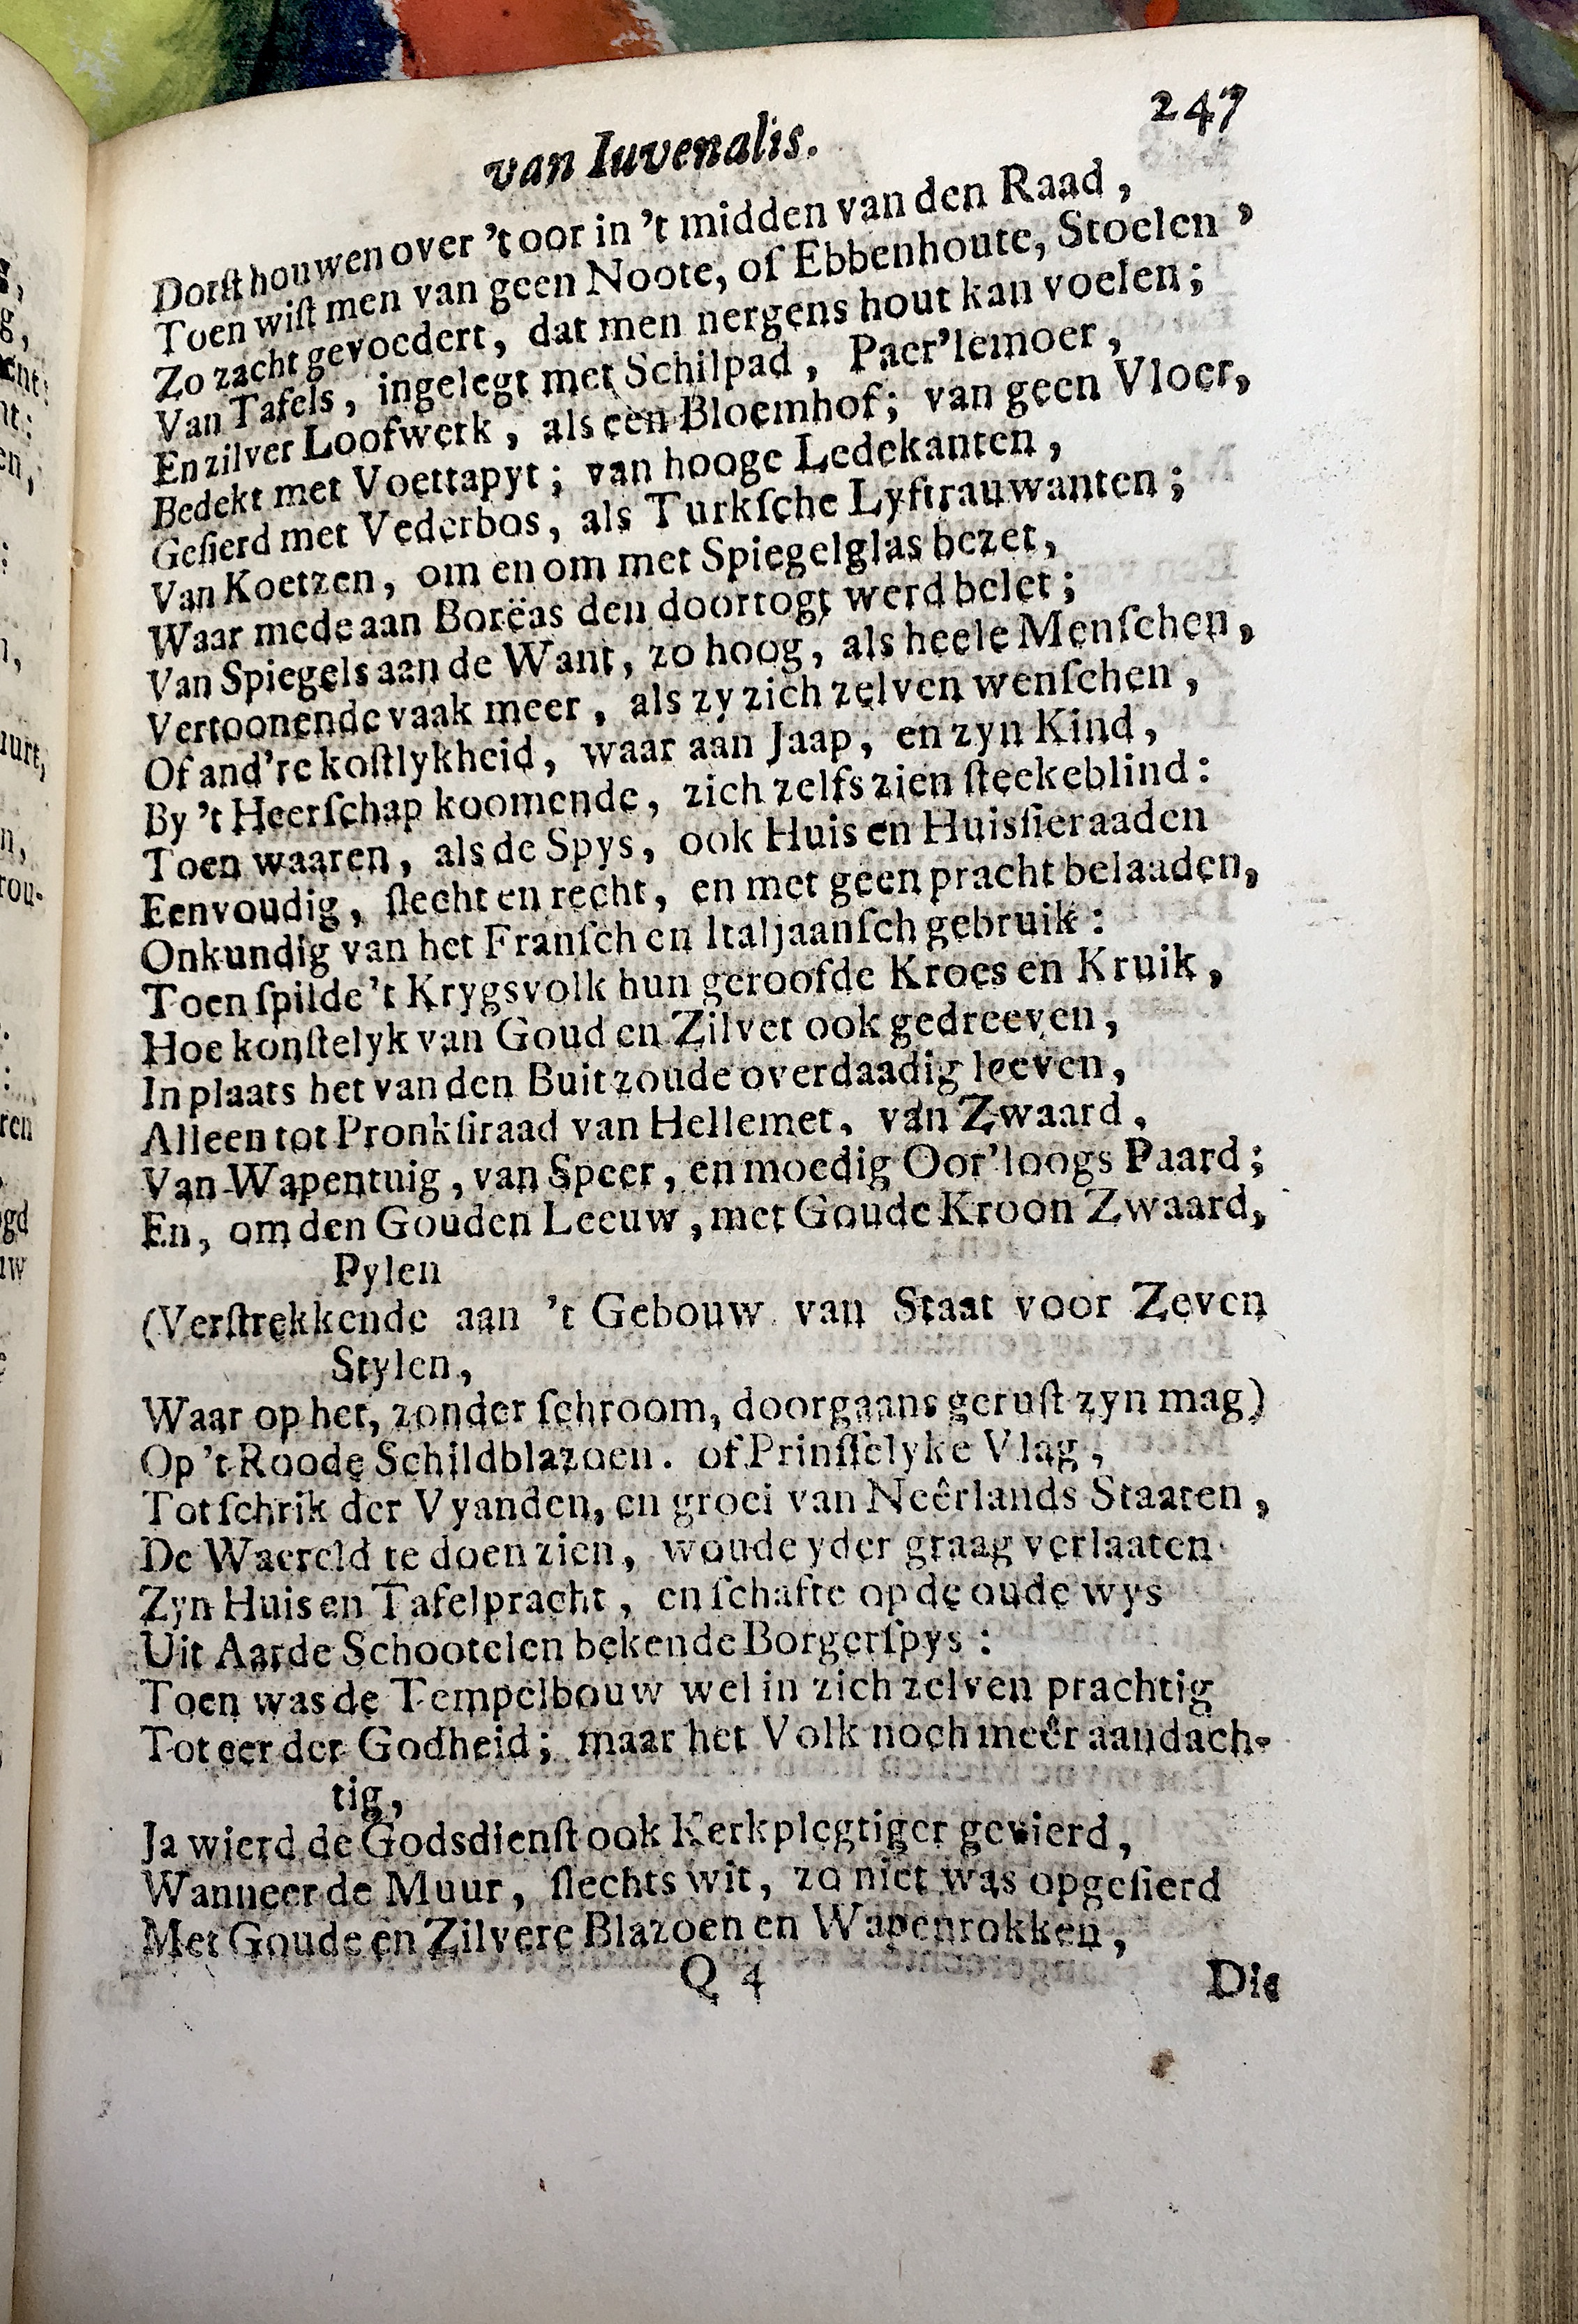 van Iuvenalis. 247
Dorſt houwen over 't oor in 't midden van den Raad,
Toen wiſt men van geen Noote, of Ebbenhoute, Stoelen,
Zo zacht gevoedert, dat men nergens hout kan voelen;
Van Tafels, ingelegt met Schilpad, Paer'lemoer,
En zilver Loofwerk, als een Bloemhof; van geen Vloer,
Bedekt met Voettapyt; van hooge Ledekanten,
Geſierd met Vederbos, als Turkſche Lyftrauwanten;
Van Koetzen, om en om met Spiegelglas bezet,
Waar mede aan Borëas den doortogt werd belet;
Van Spiegels aan de Want, zo hoog, als heele Menſchen,
Vertoonende vaak meer, als zy zich zelven wenſchen,
Of and're koſtlykheid, waar aan Jaap, en zyn Kind,
By 't Heerſchap koomende, zich zelfs zien ſteekeblind:
Toen waaren, als de Spys, ook Huis en Huisſieraaden
Eenvoudig, ſlecht en recht, en met geen pracht belaaden,
Onkundig van het Franſch en Italjaanſch gebruik:
Toen ſpilde 't Krygsvolk hun geroofde Kroes en Kruik,
Hoe konſtelyk van Goud en Zilver ook gedreeven,
In plaats het van den Buit zoude overdaadig leeven,
Alleen tot Pronkſiraad van Hellemet, van Zwaard,
Van Wapentuig, van Speer, en moedig Oor'loogs Paard;
En, om den Gouden Leeuw, met Goude Kroon Zwaard,
Pylen
(Verſtrekkende aan 't Gebouw van Staat voor Zeven
Stylen,
Waar op het, zonder ſchroom, doorgaans geruſt zyn mag)
Op 't Roode Schildblazoen. of Prinſſelyke Vlag,
Tot ſchrik der Vyanden, en groei van Neêrlands Staaten,
De Waereld te doen zien, woude yder graag verlaaten
Zyn Huis en Tafelpracht, en ſchafte op de oude wys
Uit Aarde Schootelen bekende Borgerſpys:
Toen was de Tempelbouw wel in zich zelven prachtig
Tot eer der Godheid; maar het Volk noch meêr aandach-
tig,
Ja wierd de Godsdienſt ook Kerkplegtiger gevierd,
Wanneer de Muur, ſlechts wit, zo niet was opgeſierd
Met Goude en Zilvere Blazoen en Wapenrokken,
Q 4 Die